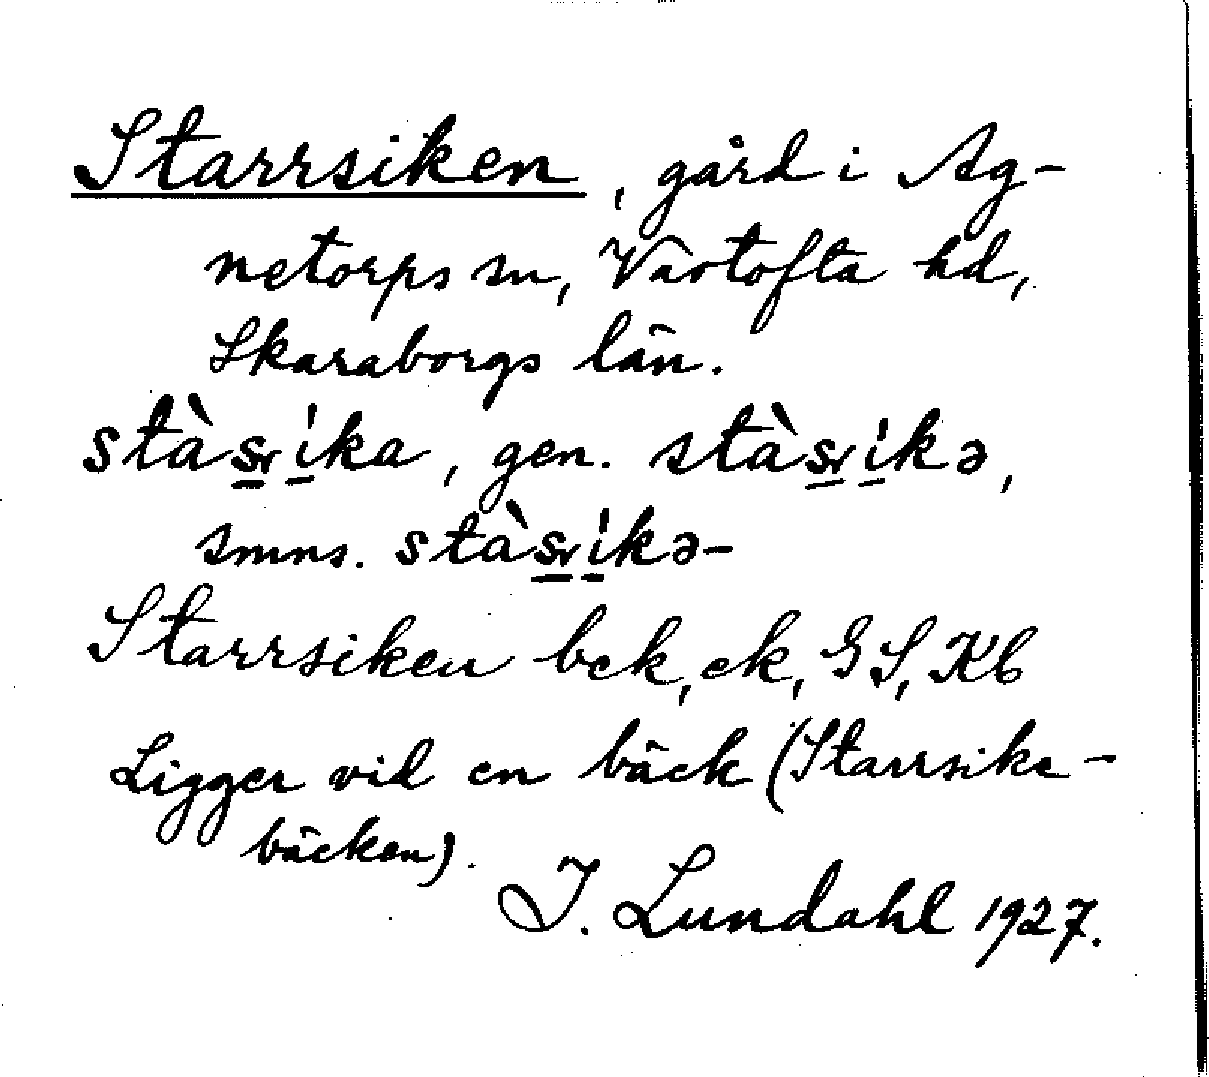 Starrsiken, gård i Ag-
netorps sn, Vartofta hd,
Skaraborgs län.
stàs̠i̠ka, gen. stàs̠i̠kə,
smns. stàs̠i̠kə-
Starrsiken bck, ek, GS, Kb
Ligger vid en bäck (Starrsike-
bäcken).
J. Lundahl 1927.